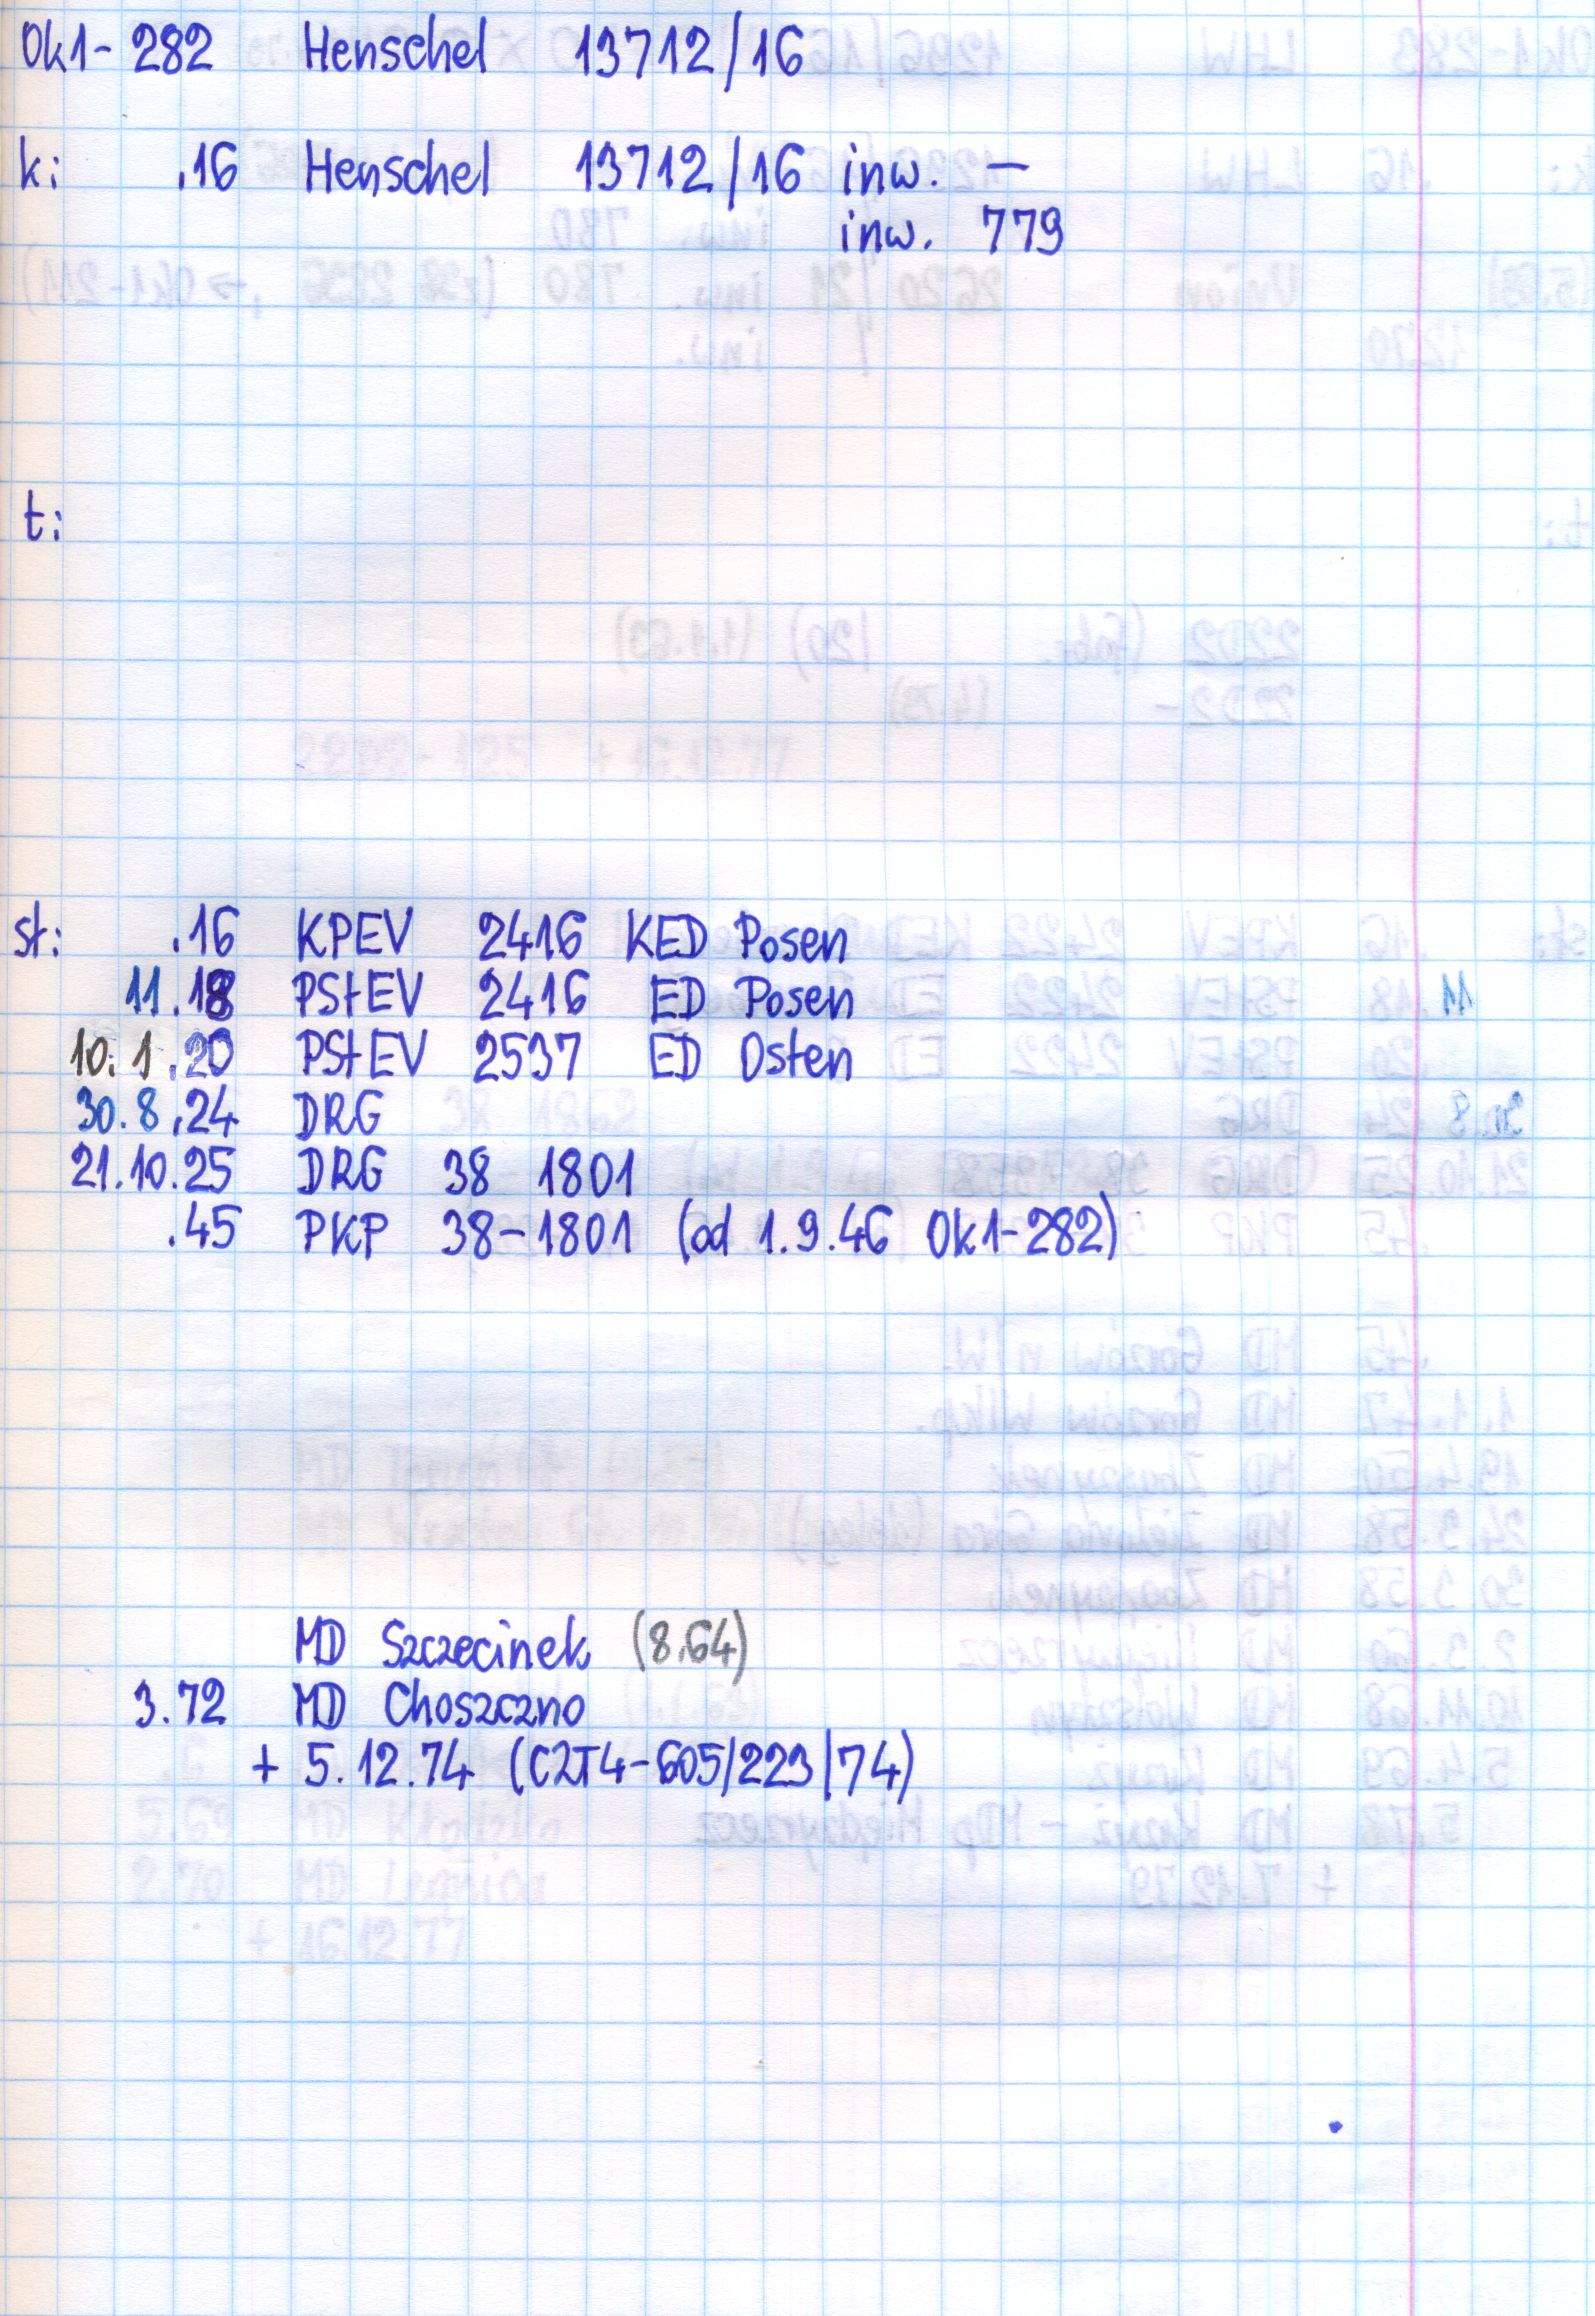 Ok1-282 Henschel 13712/16
k: .16 Henschel 13712/16 inw. —
inw. 779
t:
st: .16 KPEV 2416 KED Posen
11.18 PStEV 2416 ED Posen
10.1.20 PStEV 2537 ED Osten
30.8.24 DRG
21.10.25 DRG 38 1801
.45 PKP 38-1801 (od 1.9.46 Ok1-282)
MD Szczecinek (8.64)
3.72 MD Choszczno
+ 5.12.74 (C2T4-605/223/74)